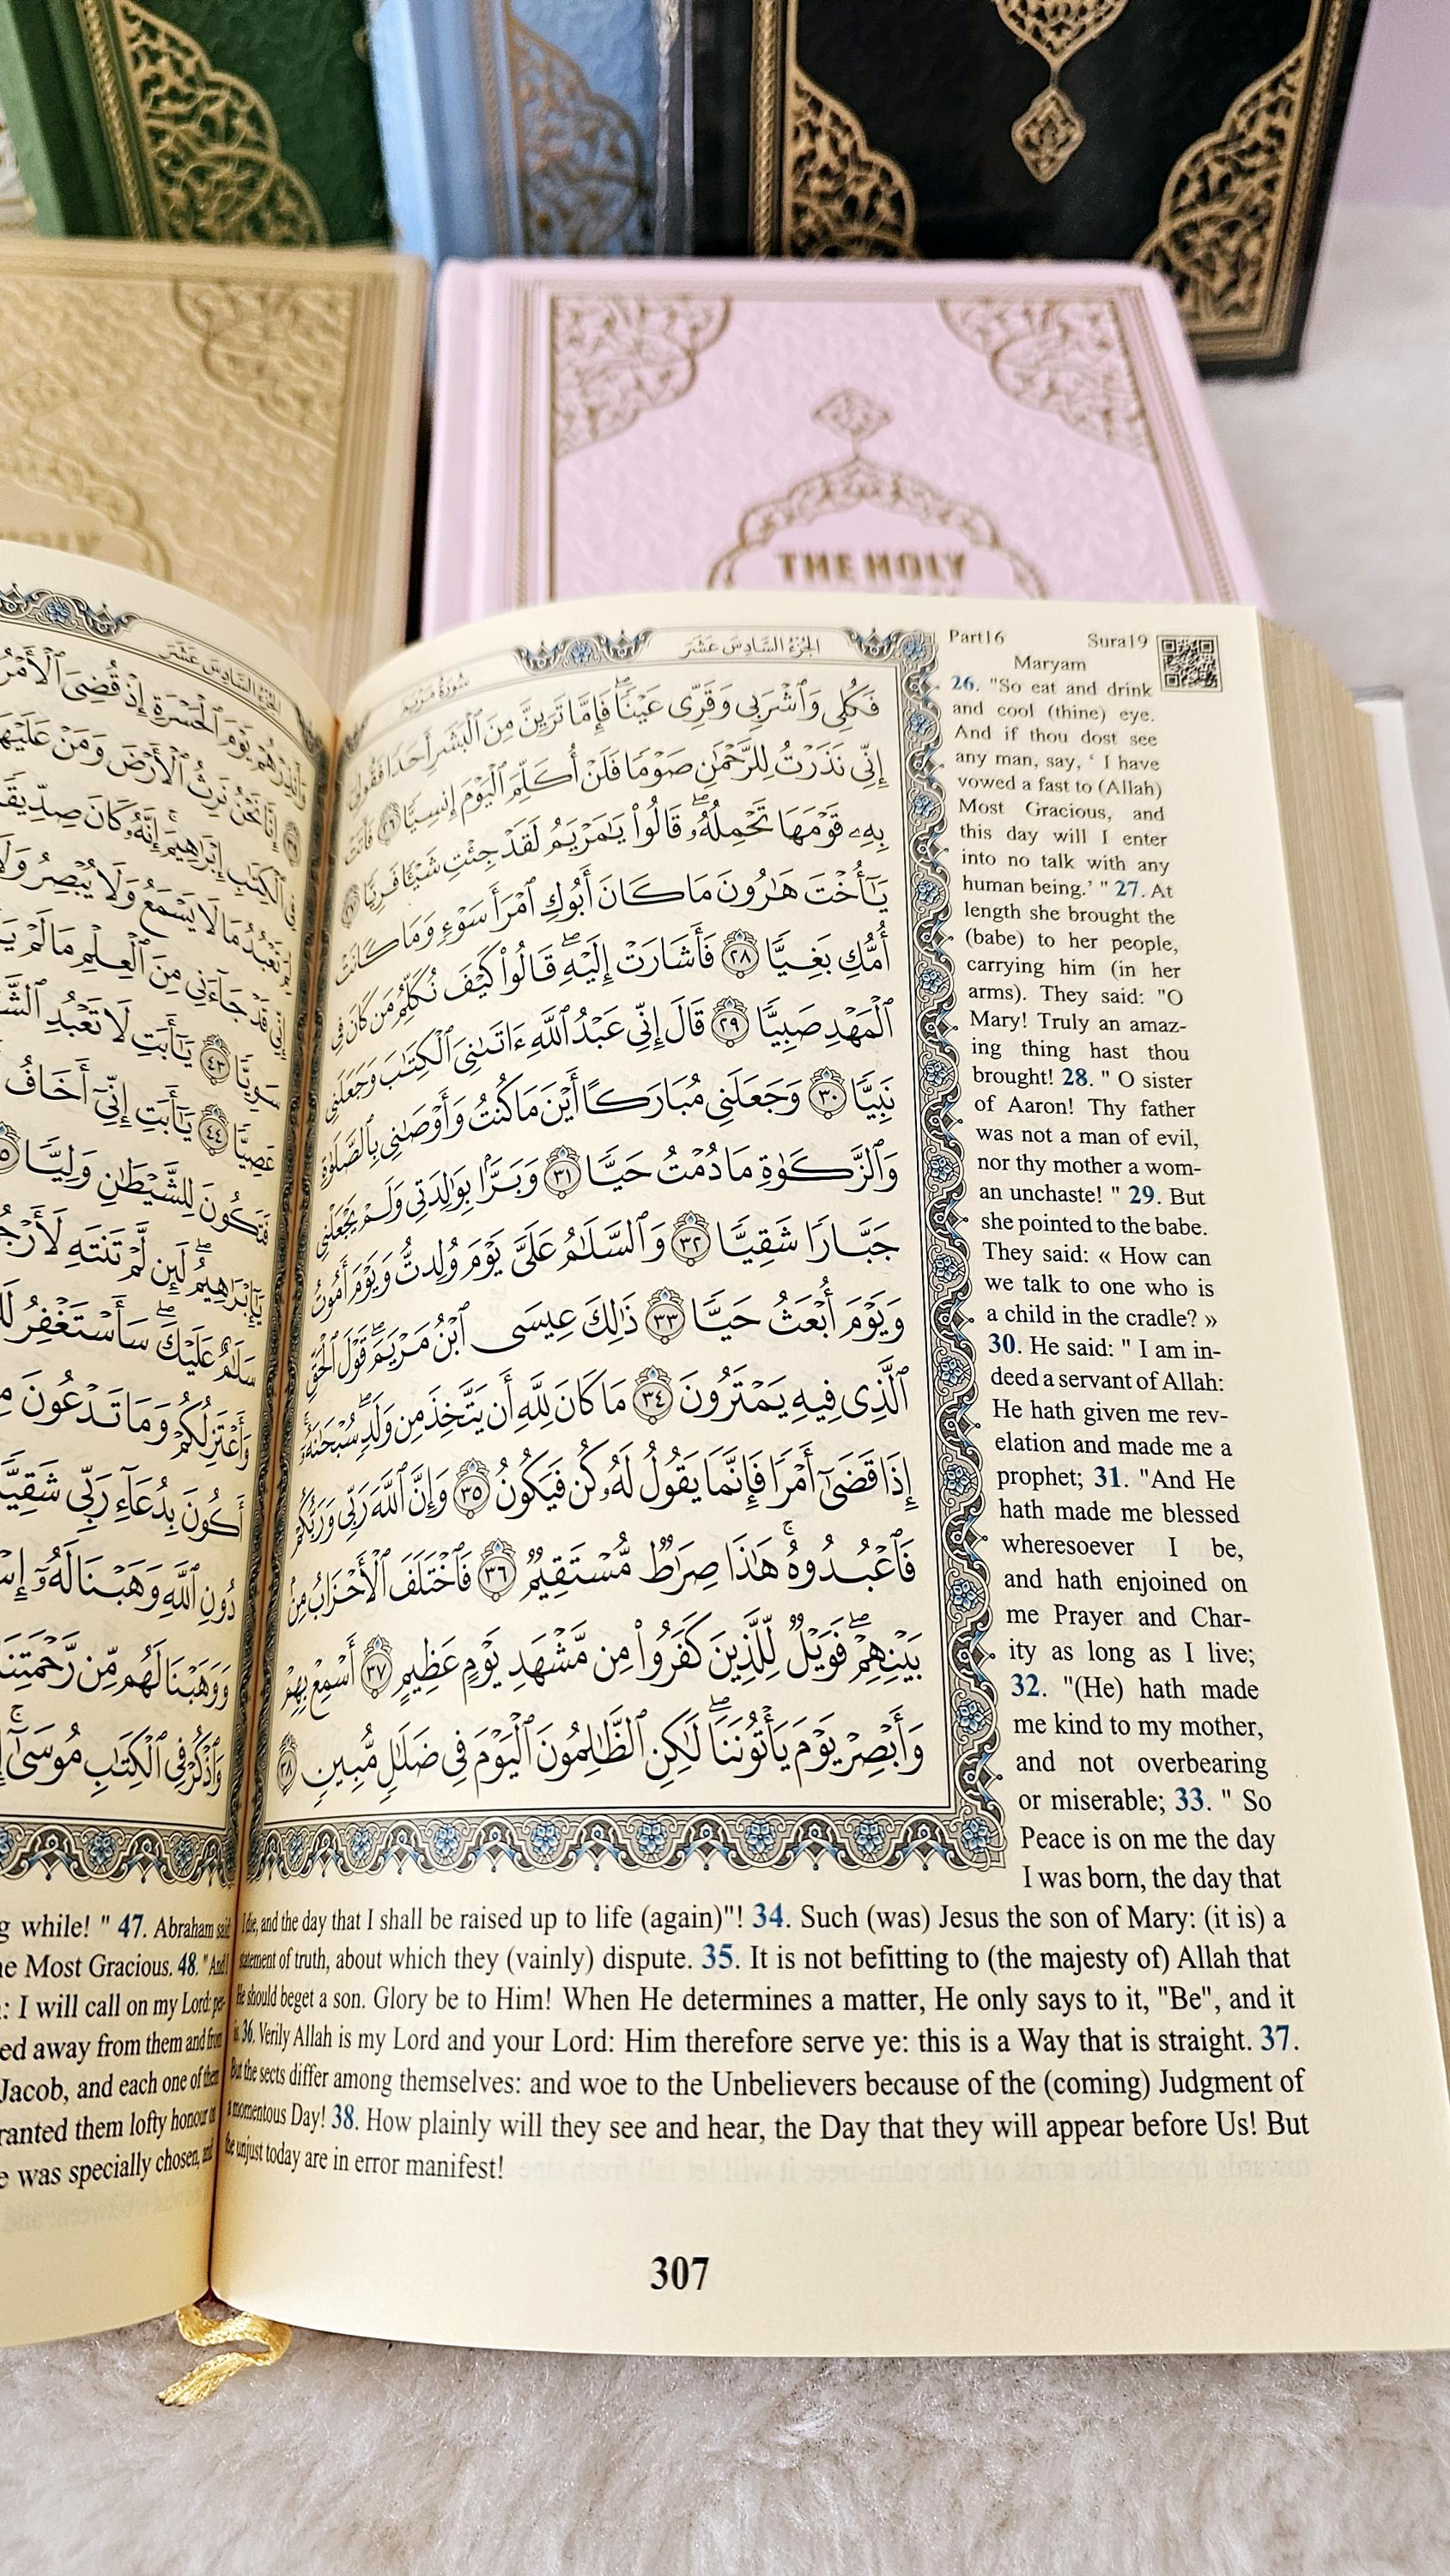 THE HOLY
HOLY
الجزء السادس عشر
سورة مريم
فَكُلِى وَٱشْرَبِى وَقَرِّى عَيْنًۭاۖ فَإِمَّا تَرَيِنَّ مِنَ ٱلْبَشَرِ أَحَدًۭا فَقُولِىٓ
إِنِّى نَذَرْتُ لِلرَّحْمَٰنِ صَوْمًۭا فَلَنْ أُكَلِّمَ ٱلْيَوْمَ إِنسِيًّۭا ٢٦ فَأَتَتْ
بِهِۦ قَوْمَهَا تَحْمِلُهُۥۖ قَالُوا۟ يَٰمَرْيَمُ لَقَدْ جِئْتِ شَيْـًۭٔا فَرِيًّۭا ٢٧
يَٰٓأُخْتَ هَٰرُونَ مَا كَانَ أَبُوكِ ٱمْرَأَ سَوْءٍۢ وَمَا كَانَتْ
أُمُّكِ بَغِيًّۭا ٢٨ فَأَشَارَتْ إِلَيْهِۖ قَالُوا۟ كَيْفَ نُكَلِّمُ مَن كَانَ فِى
ٱلْمَهْدِ صَبِيًّۭا ٢٩ قَالَ إِنِّى عَبْدُ ٱللَّهِ ءَاتَىٰنِىَ ٱلْكِتَٰبَ وَجَعَلَنِى
نَبِيًّۭا ٣٠ وَجَعَلَنِى مُبَارَكًا أَيْنَ مَا كُنتُ وَأَوْصَٰنِى بِٱلصَّلَوٰةِ
وَٱلزَّكَوٰةِ مَا دُمْتُ حَيًّۭا ٣١ وَبَرًّۢا بِوَٰلِدَتِى وَلَمْ يَجْعَلْنِى
جَبَّارًۭا شَقِيًّۭا ٣٢ وَٱلسَّلَٰمُ عَلَىَّ يَوْمَ وُلِدتُّ وَيَوْمَ أَمُوتُ
وَيَوْمَ أُبْعَثُ حَيًّۭا ٣٣ ذَٰلِكَ عِيسَى ٱبْنُ مَرْيَمَۖ قَوْلَ ٱلْحَقِّ
ٱلَّذِى فِيهِ يَمْتَرُونَ ٣٤ مَا كَانَ لِلَّهِ أَن يَتَّخِذَ مِن وَلَدٍۢۖ سُبْحَٰنَهُۥٓۚ
إِذَا قَضَىٰٓ أَمْرًۭا فَإِنَّمَا يَقُولُ لَهُۥ كُن فَيَكُونُ ٣٥ وَإِنَّ ٱللَّهَ رَبِّى وَرَبُّكُمْ
فَٱعْبُدُوهُۚ هَٰذَا صِرَٰطٌۭ مُّسْتَقِيمٌۭ ٣٦ فَٱخْتَلَفَ ٱلْأَحْزَابُ مِنۢ
بَيْنِهِمْۖ فَوَيْلٌۭ لِّلَّذِينَ كَفَرُوا۟ مِن مَّشْهَدِ يَوْمٍ عَظِيمٍ ٣٧ أَسْمِعْ بِهِمْ
وَأَبْصِرْ يَوْمَ يَأْتُونَنَاۖ لَٰكِنِ ٱلظَّٰلِمُونَ ٱلْيَوْمَ فِى ضَلَٰلٍۢ مُّبِينٍۢ ٣٨
Part16 Sura19
Maryam
26. "So eat and drink
and cool (thine) eye.
And if thou dost see
any man, say, ‘ I have
vowed a fast to (Allah)
Most Gracious, and
this day will I enter
into no talk with any
human being.’ " 27. At
length she brought the
(babe) to her people,
carrying him (in her
arms). They said: "O
Mary! Truly an amaz-
ing thing hast thou
brought! 28. " O sister
of Aaron! Thy father
was not a man of evil,
nor thy mother a wom-
an unchaste! " 29. But
she pointed to the babe.
They said: « How can
we talk to one who is
a child in the cradle? »
30. He said: " I am in-
deed a servant of Allah:
He hath given me rev-
elation and made me a
prophet; 31. "And He
hath made me blessed
wheresoever I be,
and hath enjoined on
me Prayer and Char-
ity as long as I live;
32. "(He) hath made
me kind to my mother,
and not overbearing
or miserable; 33. " So
Peace is on me the day
I was born, the day that
I die, and the day that I shall be raised up to life (again)"! 34. Such (was) Jesus the son of Mary: (it is) a
statement of truth, about which they (vainly) dispute. 35. It is not befitting to (the majesty of) Allah that
He should beget a son. Glory be to Him! When He determines a matter, He only says to it, "Be", and it
is. 36. Verily Allah is my Lord and your Lord: Him therefore serve ye: this is a Way that is straight. 37.
But the sects differ among themselves: and woe to the Unbelievers because of the (coming) Judgment of
a momentous Day! 38. How plainly will they see and hear, the Day that they will appear before Us! But
the unjust today are in error manifest!
307
الجزء السادس عشر
وَأَنذِرْهُمْ يَوْمَ ٱلْحَسْرَةِ إِذْ قُضِىَ ٱلْأَمْرُ
إِنَّا نَحْنُ نَرِثُ ٱلْأَرْضَ وَمَنْ عَلَيْهَا
ٱلْكِتَٰبِ إِبْرَٰهِيمَۚ إِنَّهُۥ كَانَ صِدِّيقًۭا
تَعْبُدُ مَا لَا يَسْمَعُ وَلَا يُبْصِرُ وَلَا
قَدْ جَآءَنِى مِنَ ٱلْعِلْمِ مَا لَمْ
سَوِيًّۭا ٤٣ يَٰٓأَبَتِ لَا تَعْبُدِ
عَصِيًّۭا ٤٤ يَٰٓأَبَتِ إِنِّىٓ أَخَافُ
فَتَكُونَ لِلشَّيْطَٰنِ وَلِيًّۭا
يَٰٓإِبْرَٰهِيمُۖ لَئِن لَّمْ تَنتَهِ
سَلَٰمٌ عَلَيْكَۖ سَأَسْتَغْفِرُ
وَأَعْتَزِلُكُمْ وَمَا تَدْعُونَ
أَكُونَ بِدُعَآءِ رَبِّى شَقِيًّۭا
دُونِ ٱللَّهِ وَهَبْنَا لَهُۥٓ
وَوَهَبْنَا لَهُم مِّن رَّحْمَتِنَا
وَٱذْكُرْ فِى ٱلْكِتَٰبِ مُوسَىٰٓۚ
while! " 47. Abraham said
Most Gracious. 48. "And
: I will call on my Lord: per-
away from them and from
Jacob, and each one of them
them lofty honour
was specially chosen, and